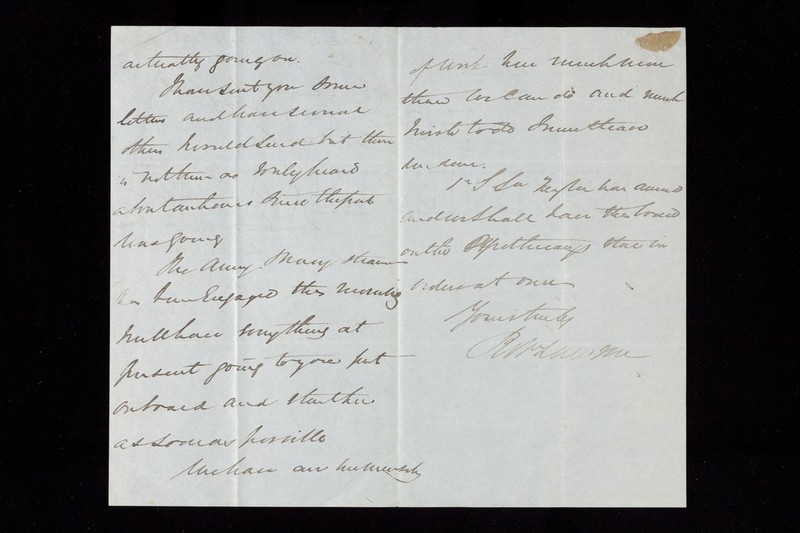 actually going on.
I have sent you some
letters and have several
others I would send but there
is not time as I only heard
about an hour since the post
was going
The Army steamer
has been Engaged this morning
will have everything at
present going to you put
on board and start her
as soon as possible
We have an immensity
of work here much more
than we can do and much
I wish to do I must leave
1st
and we shall have the board
on the Apothecary's Store in
orders at once
Yours truly